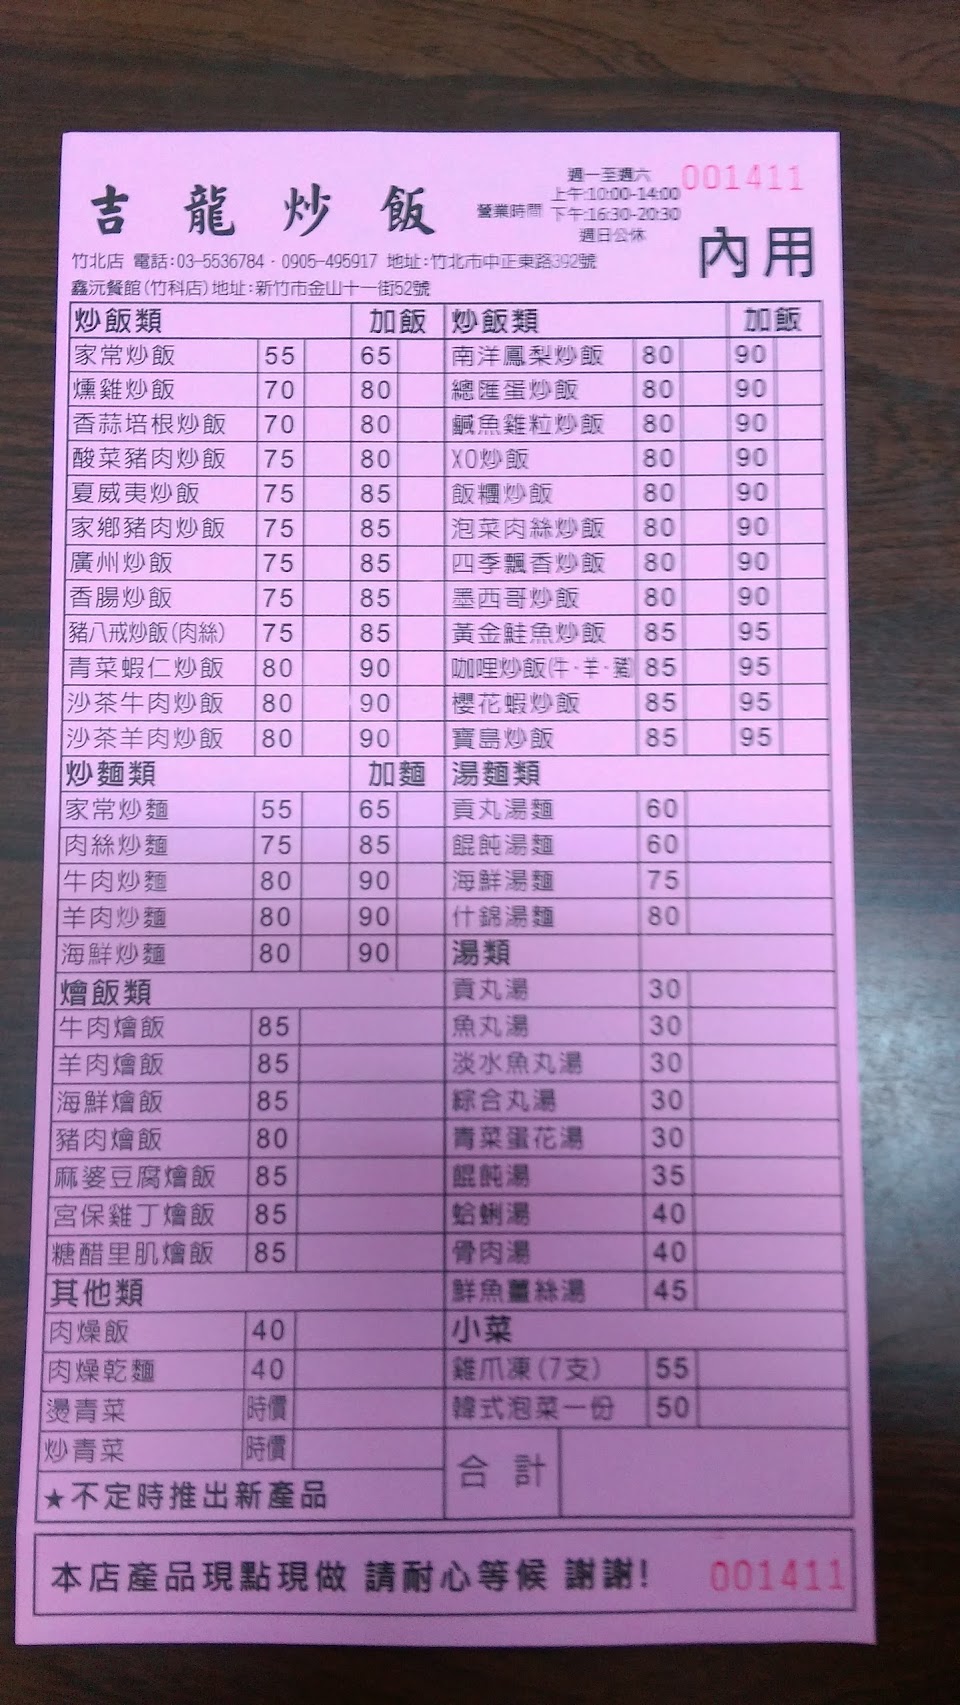 吉龍炒飯
營業時間
週一至週六
上午:10:00-14:00
下午:16:30-20:30
週日公休
001411
內用
竹北店 電話:03-5536784·0905-495917 地址:竹北市中正東路392號
鑫沅餐館(竹科店)地址:新竹市金山十一街52號
炒飯類 加飯
家常炒飯 55 65
燻雞炒飯 70 80
香蒜培根炒飯 70 80
酸菜豬肉炒飯 75 80
夏威夷炒飯 75 85
家鄉豬肉炒飯 75 85
廣州炒飯 75 85
香腸炒飯 75 85
豬八戒炒飯(肉絲) 75 85
青菜蝦仁炒飯 80 90
沙茶牛肉炒飯 80 90
沙茶羊肉炒飯 80 90
炒麵類 加麵
家常炒麵 55 65
肉絲炒麵 75 85
牛肉炒麵 80 90
羊肉炒麵 80 90
海鮮炒麵 80 90
燴飯類
牛肉燴飯 85
羊肉燴飯 85
海鮮燴飯 85
豬肉燴飯 80
麻婆豆腐燴飯 85
宮保雞丁燴飯 85
糖醋里肌燴飯 85
其他類
肉燥飯 40
肉燥乾麵 40
燙青菜 時價
炒青菜 時價
★不定時推出新產品
炒飯類 加飯
南洋鳳梨炒飯 80 90
總匯蛋炒飯 80 90
鹹魚雞粒炒飯 80 90
XO炒飯 80 90
飯糰炒飯 80 90
泡菜肉絲炒飯 80 90
四季飄香炒飯 80 90
墨西哥炒飯 80 90
黃金鮭魚炒飯 85 95
咖哩炒飯(牛·羊·豬) 85 95
櫻花蝦炒飯 85 95
寶島炒飯 85 95
湯麵類
貢丸湯麵 60
餛飩湯麵 60
海鮮湯麵 75
什錦湯麵 80
湯類
貢丸湯 30
魚丸湯 30
淡水魚丸湯 30
綜合丸湯 30
青菜蛋花湯 30
餛飩湯 35
蛤蜊湯 40
骨肉湯 40
鮮魚薑絲湯 45
小菜
雞爪凍(7支) 55
韓式泡菜一份 50
合計
本店產品現點現做 請耐心等候 謝謝!
001411